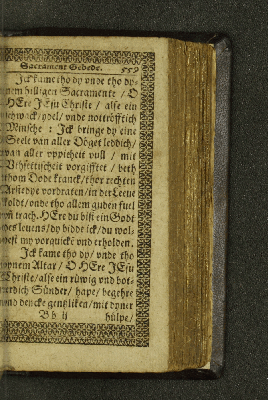 Sacrament Gebede. 559
Ick kame tho dy vnde tho dy-
nem hilligen Sacramente / O
HEre JEsu Christe / alse ein
schwack / ydel / vnde nottröfftich
Minsche : Ick bringe dy eine
Seele van aller Döget leddich /
van aller vppicheit vull / mit
vorgifftet / beth
thom Dode kranck / thor rechten
vordraten / in der Leeue
koldt / vnde tho allem guden fuel
vnd trach. HEre du bist ein Godt
des leuens / dy bidde ick / du wol-
dest my vorquicken vnd erholden.
Ick kame tho dy / vnde tho
dynem Altar / O HEre JEsu
Christe / alse ein rüwig vnd bot-
uerdich Sünder / hape / begehre
vnd dencke gentzliken / mit dyner
B b ij hülpe /